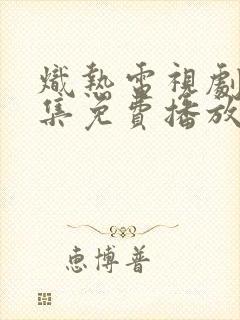 熾熱電視劇
集免費播放
惠博普